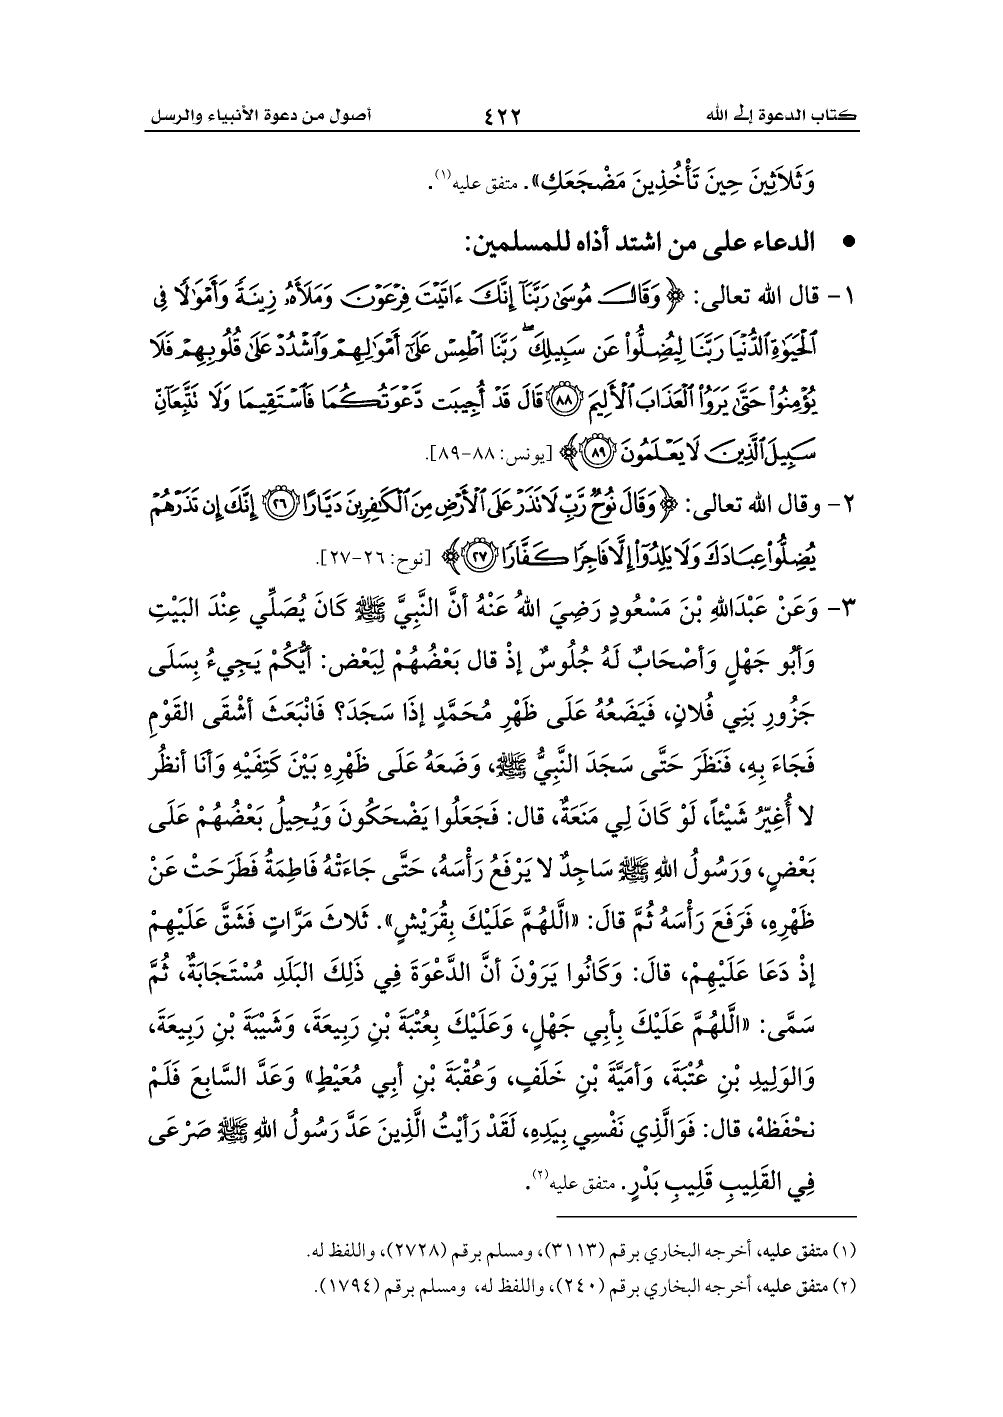 كتاب الدعوة إلى الله ٤٢٢ أصول من دعوة الأنبياء والرسل
وَثَلاَثِينَ حِينَ تَأْخُذِينَ مَضْجَعَكِ». متفق عليه(١).
• الدعاء على من اشتد أذاه للمسلمين:
١- قال الله تعالى: ﴿وَقَالَ مُوسَىٰ رَبَّنَآ إِنَّكَ ءَاتَيْتَ فِرْعَوْنَ وَمَلَأَهُۥ زِينَةً وَأَمْوَٰلًا فِي
ٱلْحَيَوٰةِ ٱلدُّنْيَا رَبَّنَا لِيُضِلُّوا۟ عَن سَبِيلِكَ ۖ رَبَّنَا ٱطْمِسْ عَلَىٰٓ أَمْوَٰلِهِمْ وَٱشْدُدْ عَلَىٰ قُلُوبِهِمْ فَلَا
يُؤْمِنُوا۟ حَتَّىٰ يَرَوُا۟ ٱلْعَذَابَ ٱلْأَلِيمَ ٨٨ قَالَ قَدْ أُجِيبَت دَّعْوَتُكُمَا فَٱسْتَقِيمَا وَلَا نَتَّبِعَآنِّ
سَبِيلَ ٱلَّذِينَ لَا يَعْلَمُونَ ٨٩﴾ [يونس: ٨٨-٨٩].
٢- وقال الله تعالى: ﴿وَقَالَ نُوحٌ رَّبِّ لَا تَذَرْ عَلَى ٱلْأَرْضِ مِنَ ٱلْكَٰفِرِينَ دَيَّارًا ٢٦ إِنَّكَ إِن تَذَرْهُمْ
يُضِلُّوا۟ عِبَادَكَ وَلَا يَلِدُوٓا۟ إِلَّا فَاجِرًا كَفَّارًا ٢٧﴾ [نوح: ٢٦-٢٧].
٣- وَعَنْ عَبْدَاللهِ بْنَ مَسْعُودٍ رَضِيَ اللهُ عَنْهُ أنَّ النَّبِيَّ ﷺ كَانَ يُصَلِّي عِنْدَ البَيْتِ
وَأبُو جَهْلٍ وَأصْحَابٌ لَهُ جُلُوسٌ إذْ قال بَعْضُهُمْ لِبَعْض: أيُّكُمْ يَجِيءُ بِسَلَى
جَزُورِ بَنِي فُلانٍ، فَيَضَعُهُ عَلَى ظَهْرِ مُحَمَّدٍ إذَا سَجَدَ؟ فَانْبَعَثَ أشْقَى القَوْمِ
فَجَاءَ بِهِ، فَنَظَرَ حَتَّى سَجَدَ النَّبِيُّ ﷺ، وَضَعَهُ عَلَى ظَهْرِهِ بَيْنَ كَتِفَيْهِ وَأنَا أنظُر
لا أُغِيِّرُ شَيْئاً، لَوْ كَانَ لِي مَنَعَةٌ، قال: فَجَعَلُوا يَضْحَكُونَ وَيُحِيلُ بَعْضُهُمْ عَلَى
بَعْضٍ، وَرَسُولُ اللهِ ﷺ سَاجِدٌ لا يَرْفَعُ رَأْسَهُ، حَتَّى جَاءَتْهُ فَاطِمَةُ فَطَرَحَتْ عَنْ
ظَهْرِهِ، فَرَفَعَ رَأْسَهُ ثُمَّ قالَ: «الَّلهُمَّ عَلَيْكَ بِقُرَيْشٍ». ثَلاثَ مَرَّاتٍ فَشَقَّ عَلَيْهِمْ
إذْ دَعَا عَلَيْهِمْ، قالَ: وَكَانُوا يَرَوْنَ أنَّ الدَّعْوَةَ فِي ذَلِكَ البَلَدِ مُسْتَجَابَةٌ، ثُمَّ
سَمَّى: «الَّلهُمَّ عَلَيْكَ بِأبِي جَهْلٍ، وَعَلَيْكَ بِعُتْبَةَ بْنِ رَبِيعَةَ، وَشَيْبَةَ بْنِ رَبِيعَةَ،
وَالوَلِيدِ بْنِ عُتْبَةَ، وَأمَيَّةَ بْنِ خَلَفٍ، وَعُقْبَةَ بْنِ أبِي مُعَيْطٍ» وَعَدَّ السَّابِعَ فَلَمْ
نحْفَظهْ، قال: فَوَالَّذِي نَفْسِي بِيَدِهِ، لَقَدْ رَأيْتُ الَّذِينَ عَدَّ رَسُولُ اللهِ ﷺ صَرْعَى
فِي القَلِيبِ قَلِيبِ بَدْرٍ. متفق عليه(٢).
(١) متفق عليه، أخرجه البخاري برقم (٣١١٣)، ومسلم برقم (٢٧٢٨)، واللفظ له.
(٢) متفق عليه، أخرجه البخاري برقم (٢٤٠)، واللفظ له، ومسلم برقم (١٧٩٤).